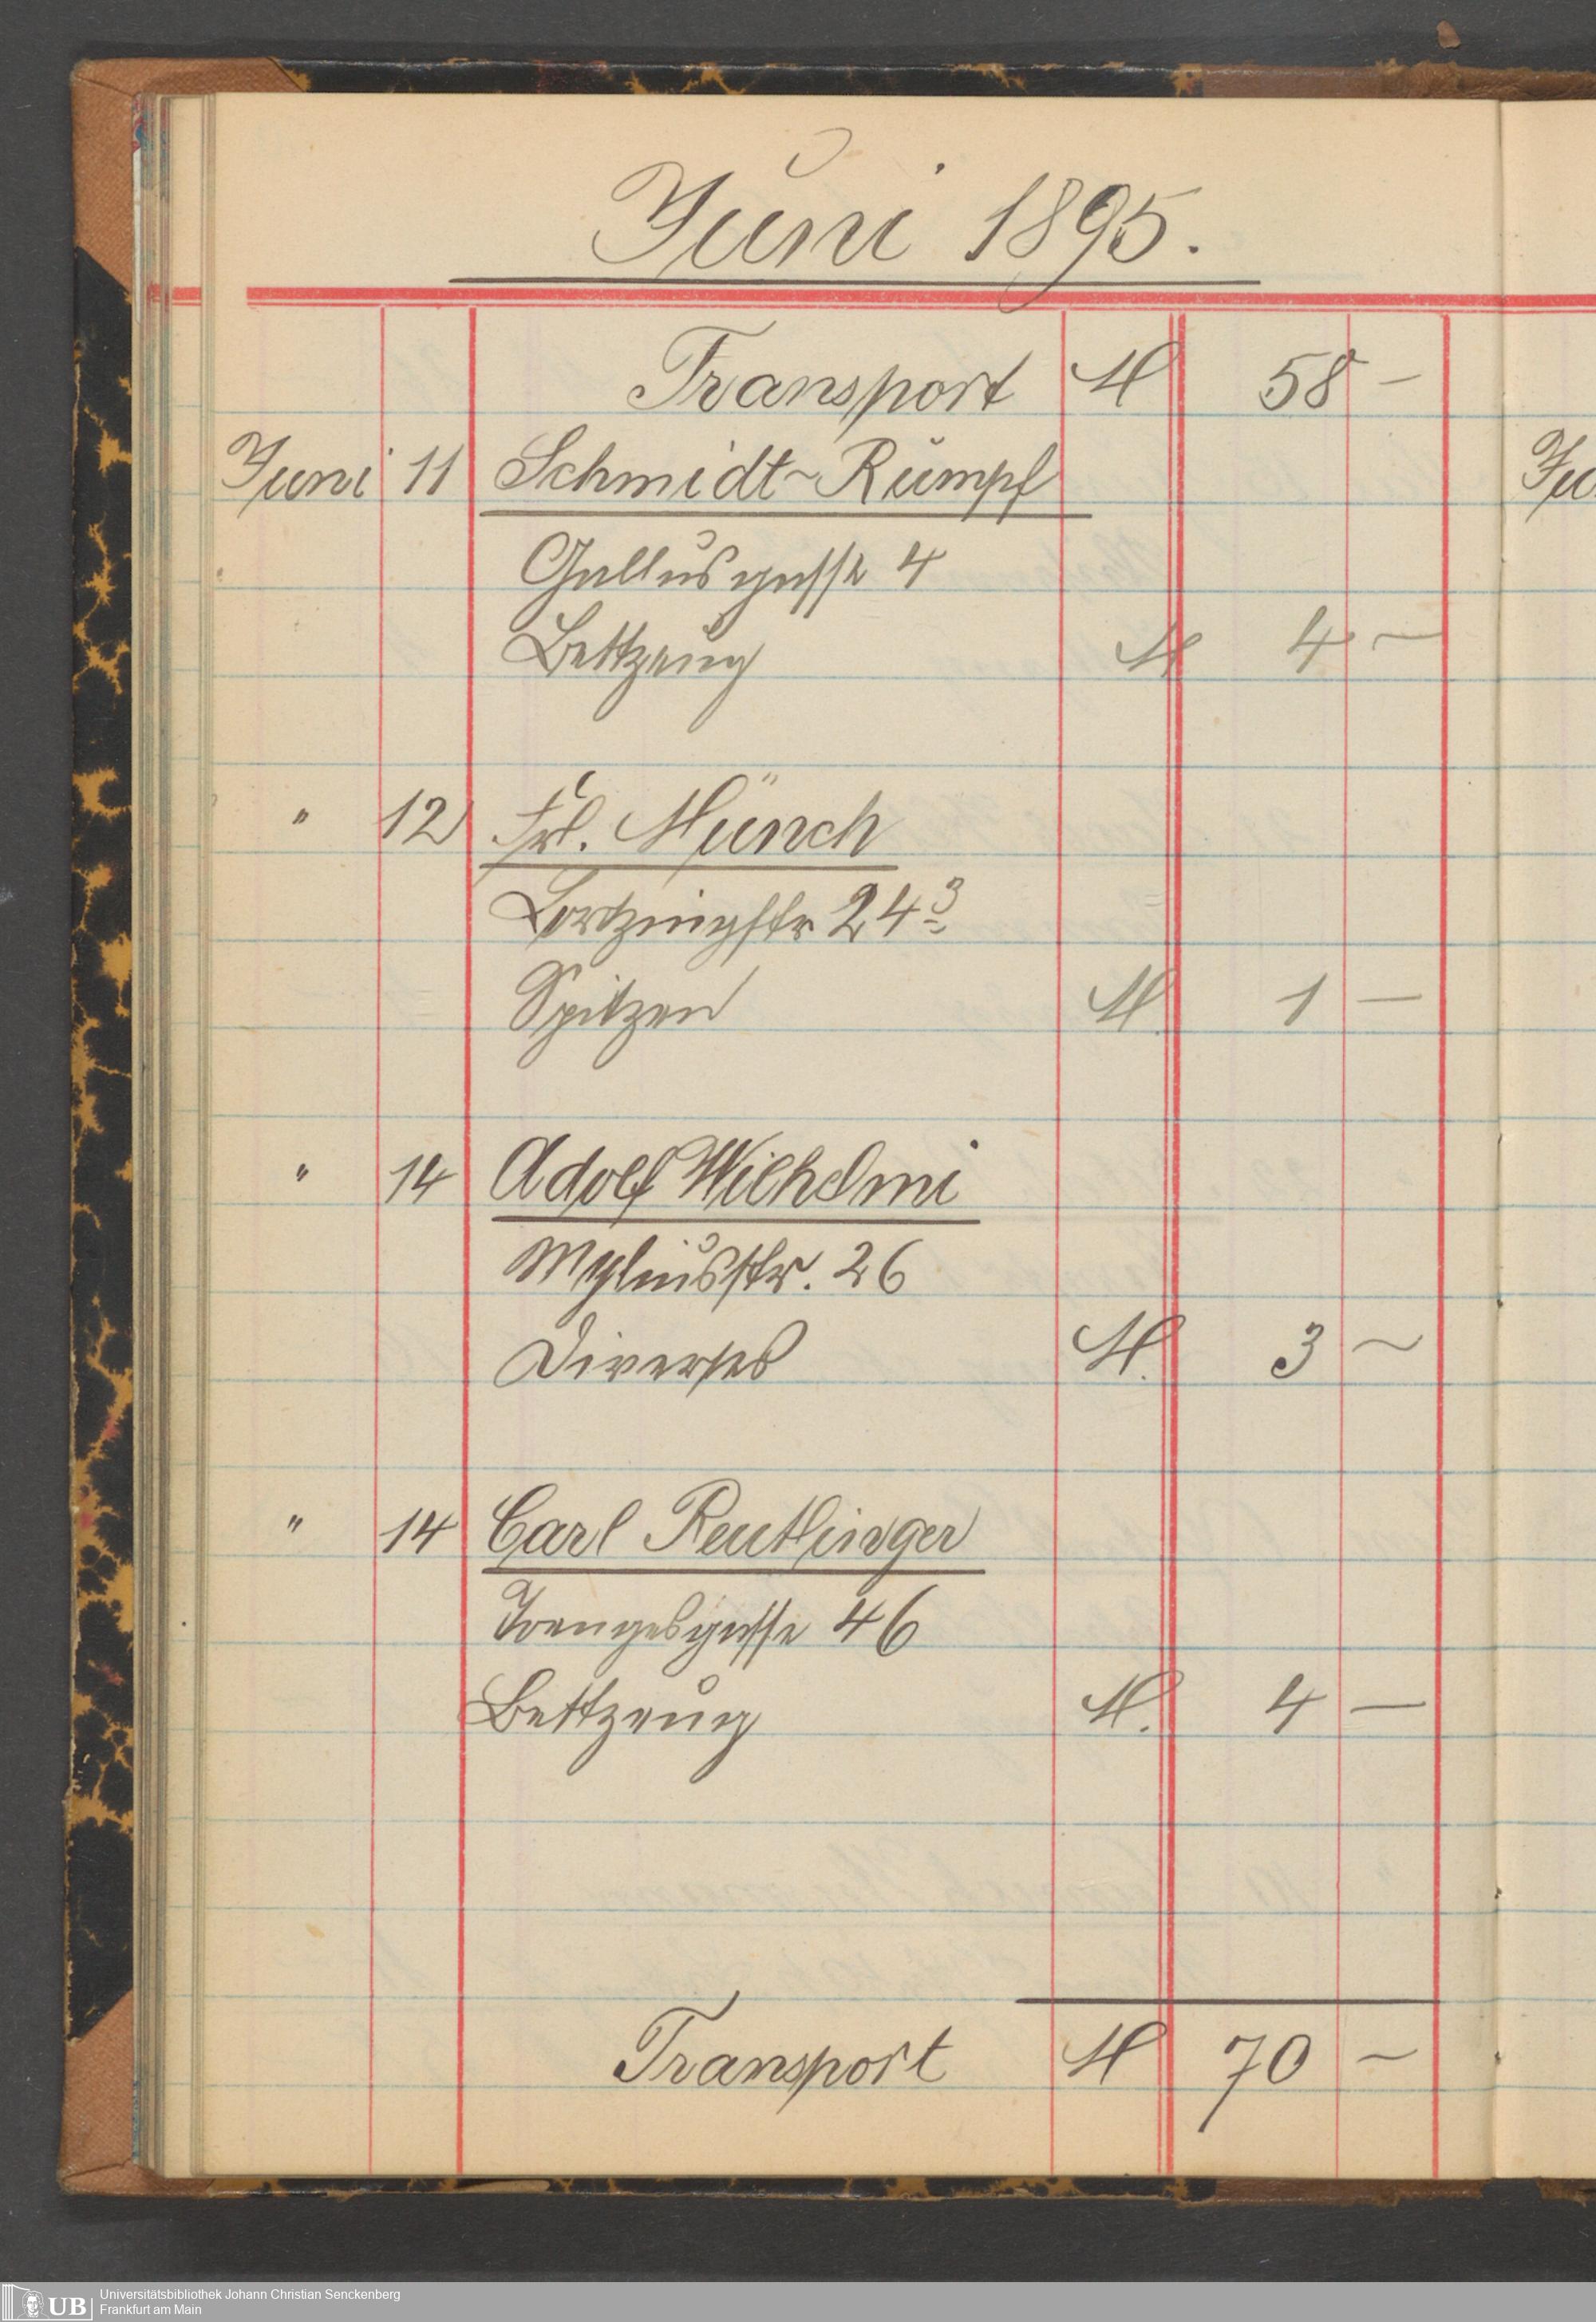 Juni 1895.
Transport M 58 –
Juni 11 Schmidt-Rumpf
Gallusgasse 4
Bettzeug M 4 –
" 12 Frl. Münch
Lortzingstr 24 3
Spitzen M. 1 –
" 14 Adolf Wilhelmi
Myliusstr. 26
Diverses M. 3 –
" 14 Carl Reutlinger
Töngesgasse 46
Bettzeug M. 4 –
Transport M 70 –
Ju
UB Universitätsbibliothek Johann Christian Senckenberg
Frankfurt am Main